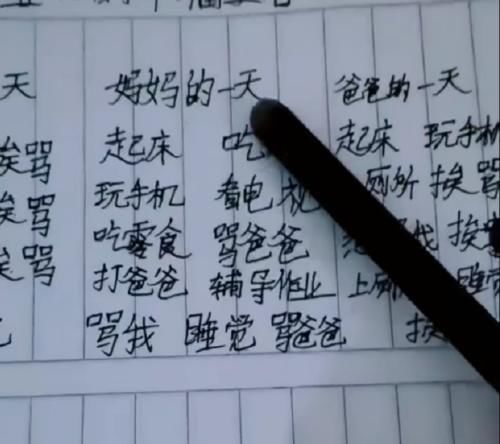 天 妈妈的一天 爸爸的一天
挨骂 起床 吃 起床 玩手机
挨骂 玩手机 看电视 厕所 挨骂
挨骂 吃零食 骂爸爸 我 挨
打爸爸 辅导作业 上厕 睡觉
骂我 睡觉 骂爸爸 挨